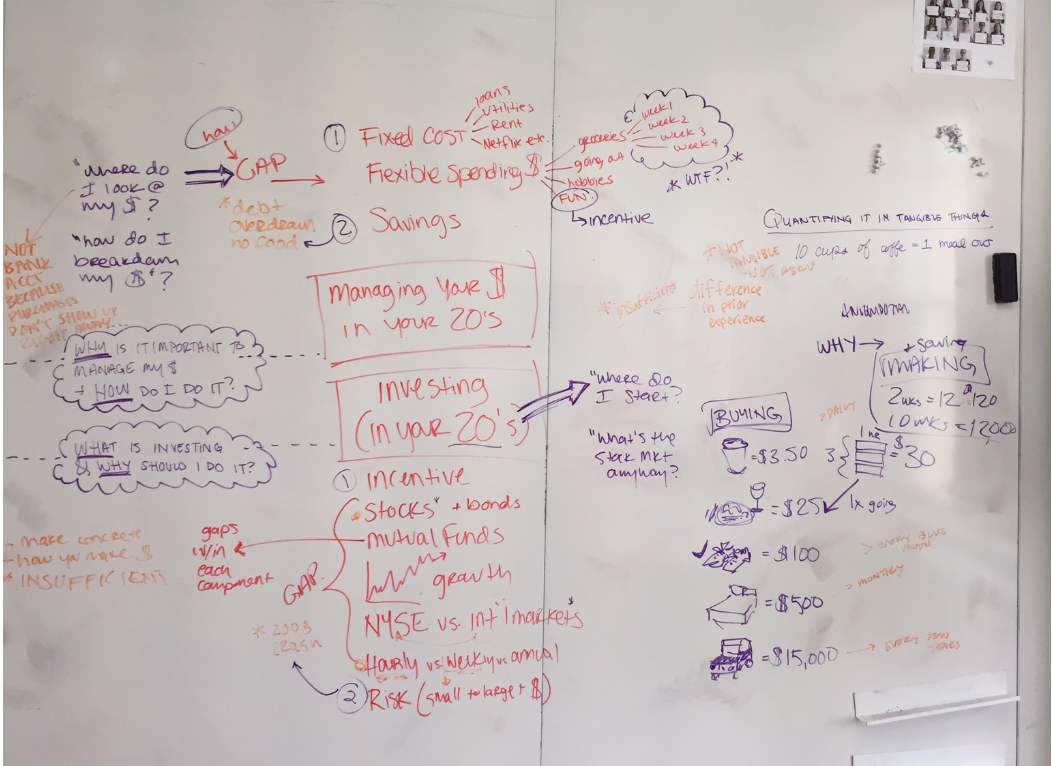 how
"where do
I look @
my $ ?
"how do I
breakdown
my $" ?
GAP
* debt
overdrawn
no good
NOT
BANK
ACCT
BECAUSE
PURCHASES
DON'T SHOW UP
RIGHT AWAY...
WHY IS IT IMPORTANT TO
MANAGE MY $
+ HOW DO I DO IT?
WHAT IS INVESTING
& WHY SHOULD I DO IT?
- make concrete
- how you make $
* INSUFFICIENT
1 FIXED COST
loans
utilities
Rent
Netflix etc.
Flexible Spending $
groceries
week 1
week 2
week 3
week 4
going out
hobbies
FUN
Incentive
* WTF?!
*
2 Savings
managing your $
in your 20's
Investing
(in your 20's)
"where do
I start?
"What's the
stock mkt
anyway?
1 incentive
Stocks* + bonds
mutual Funds
growth
NYSE vs. int'l markets*
Hourly vs. weekly vs. annual
2 Risk (small to large + $)
GAP
gaps
w/in
each
component
* 2008
crash
QUANTIFYING IT IN TANGIBLE THINGS
10 cups of coffe = 1 meal out
* NOT
TANGIBLE
NOT
* insufficient
difference
in prior
experience
WHY →
+ saving
MAKING
2 wks = 120
10 wks = 12,000
BUYING
= $3.50
3
1 hr
= $30
= $25
1x going
= $100
= $500
MONTHLY
= $15,000
EVERY